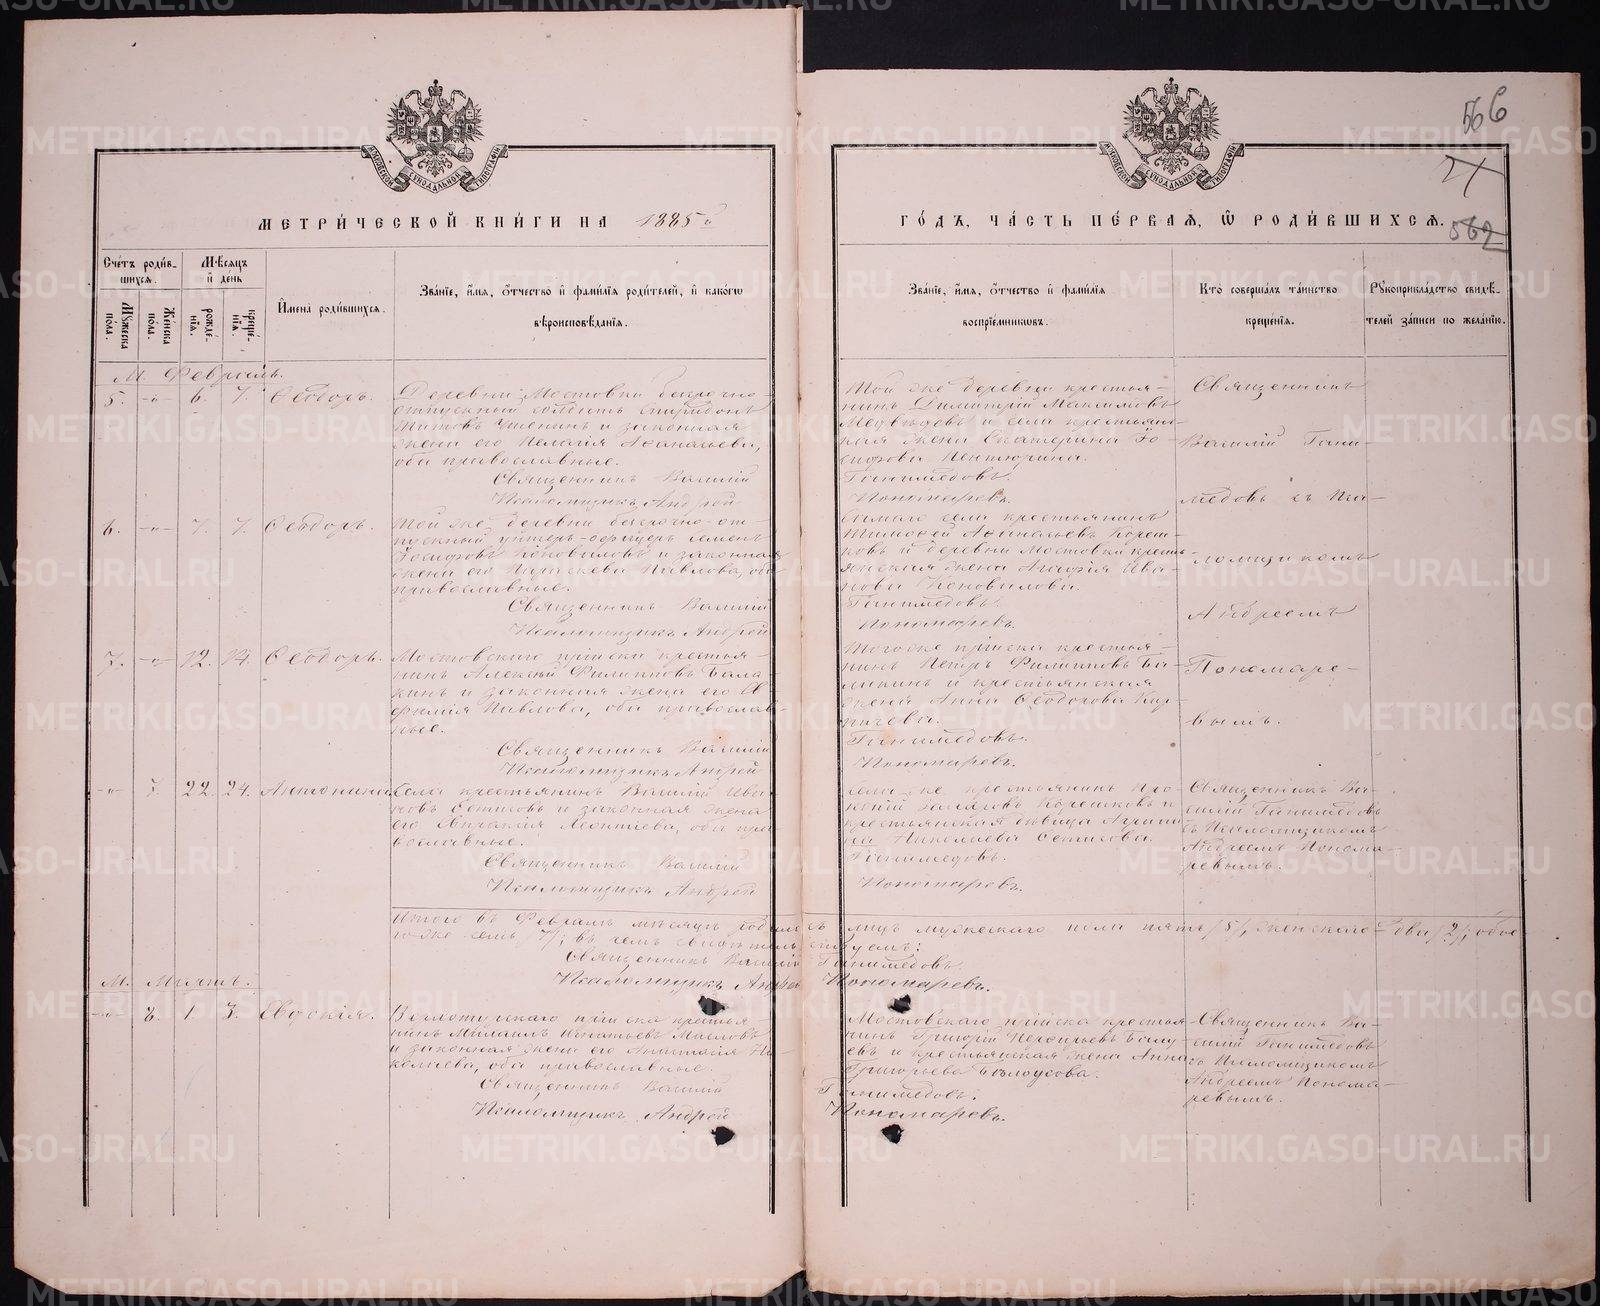 566
21
562
МЕТРИ́ЧЕСКОЙ КНИ́ГИ НА 1885й
ГО́ДЪ, ЧА́СТЬ ПЕ́РВАЯ, Ѿ РОДИ́ВШИХСЯ.
Сче́тъ роди́в-
шихся.
Му́жеска по́ла.
Же́нска по́ла.
Мѣсяцъ и де́нь
рожде́-
нїя.
креще́-
нїя.
Имена̀ роди́вшихся.
Зва́нїе, и́мя, о́тчество и фами́лїя роди́телей, и како́гѡ
вѣроисповѣ́данїя.
Зва́нїе, и́мя, о́тчество и фами́лїя
воспрїе́мниковъ.
Кто̀ соверша́лъ та́инство
креще́нїя.
Рукоприкла́дство свидѣ́-
телей за́писи по жела́нїю.
М. Февраль.
5. -"- 6. 7. Ѳеодоръ.
Деревни Мостовки безсрочно-
отпускный солдатъ Спиридонъ
Титовъ и законная
жена его Пелагія Аѳанасьева,
оба православные.
Священникъ Василій
Псаломщикъ Андрей
Той же деревни крестья-
нинъ Димитрій Максимовъ
Медвѣдевъ и села крестьян-
ская жена Екатерина Іо-
сифова
Ганимедовъ.
Пономаревъ.
Священникъ
Василій Гани-
медовъ съ Пса-
ломщикомъ
Андреемъ
Пономаре-
вымъ.
6. -"- 7. 7. Ѳеодоръ.
Той же деревни безсрочно-от-
пускный унтеръ-офицеръ Семенъ
Іосифовъ Коноваловъ и законная
жена его Параскева Павлова, оба
православные.
Священникъ Василій
Псаломщикъ Андрей
села крестьянинъ
Тимоѳей Аѳанасьевъ Кореш-
ковъ и деревни Мостовки кресть-
янская жена Агафія Ива-
нова Коновалова.
Ганимедовъ.
Пономаревъ.
7. -"- 12. 14. Ѳеодоръ.
Мостовскаго пріиска крестья-
нинъ Алексѣй Филипповъ Бала-
кинъ и законная жена его Ев-
фимія Павлова, оба православ-
ные.
Священникъ Василій
Псаломщикъ Андрей
Того же пріиска крестья-
нинъ Петръ Филипповъ Ба-
лакинъ и крестьянская
жена Анна Ѳеодорова Кир-
пичева.
Ганимедовъ.
Пономаревъ.
-"- 7. 22. 24. Антонина.
Села крестьянинъ Василій Ива-
новъ и законная жена
его Евпраксія Леонтіева, оба пра-
вославные.
Священникъ Василій
Псаломщикъ Андрей
Села же крестьянинъ Про-
копій Корешковъ и
крестьянская дѣвица Агрипи-
на Николаева
Ганимедовъ.
Пономаревъ.
Священникъ Ва-
силій Ганимедовъ
съ Псаломщикомъ
Андреемъ Понома-
ревымъ.
Итого въ Февралѣ мѣсяцѣ родилось лицъ мужескаго пола пять /5/, женскаго - два /2/; обое-
го же семь /7/; въ чемъ свидѣтельствуемъ:
Священникъ Василій Ганимедовъ.
Псаломщикъ Андрей Пономаревъ.
М. Мартъ.
-"- 8. 1. 3. Евдокія.
пріиска крестья-
нинъ Михаилъ Игнатьевъ Масловъ
и законная жена его Анастасія Ни-
колаева, оба православные.
Священникъ Василій
Псаломщикъ Андрей
Мостовскаго пріиска крестья-
нинъ Григорій
евъ и крестьянская жена Анна
Григорьева Бѣлоусова.
Ганимедовъ.
Пономаревъ.
Священникъ Ва-
силій Ганимедовъ
съ Псаломщикомъ
Андреемъ Понома-
ревымъ.
METRIKI.GASO-URAL.RU